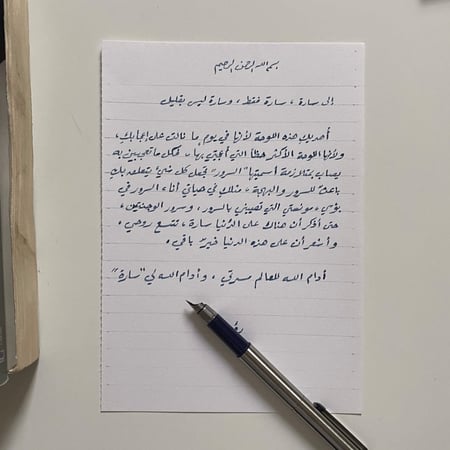 بسم الله الرحمن الرحيم
إلى سارة، سارة فقط، وسارة ليس بقليل
أهديك هذه اللوحة لأنها في يوم ما نالت على إعجابك،
ولأنها اللوحة الأكثر حظاً التي أعجبتي بها. فكل ما تعجبين به
يصاب بمتلازمة أسميتها "السرور" تجعل كل شيء يتعلق بك
باعث للسرور والبهجة. مثلك في حياتي أنا، السرور في
بؤسي، مؤنستي التي تصيبني بالسرور، وسرور الوجنتين،
حتى أذكر أن هنالك على الدنيا سارة، تتسع روحي،
وأشعر أن على هذه الدنيا خيرٌ باقي.
أدام الله للعالم مسرتي، وأدام الله لي "سارة"